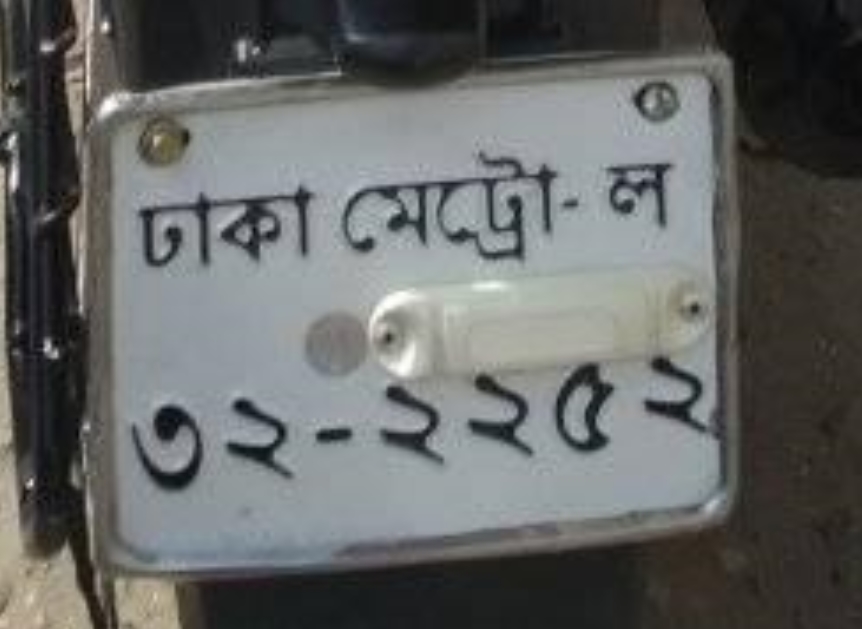 ঢাকা মেট্রো- ল
৩২-২২৫২